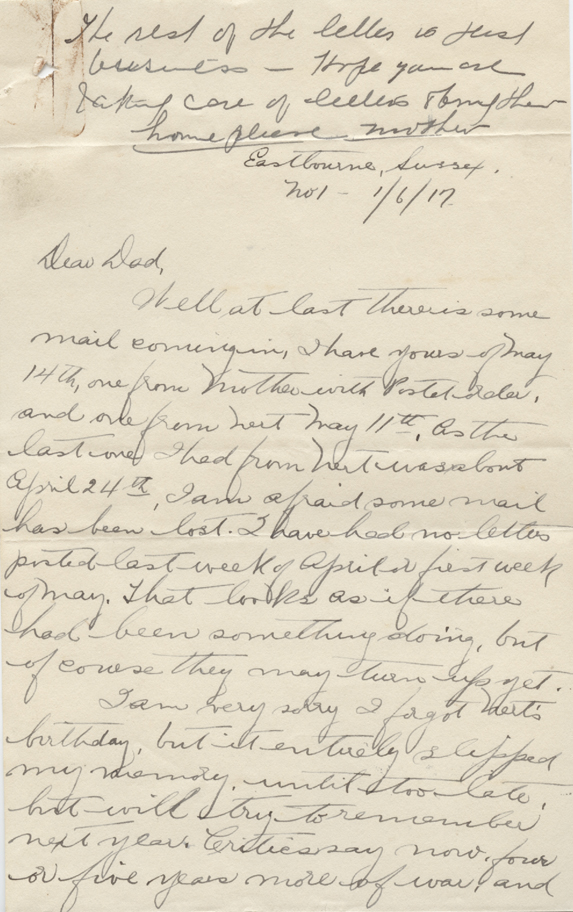 The rest of the letter is just
business – Hope you are
taking care of letters & bring them
home please mother
Eastbourne, Sussex.
No 1 – 1/6/17.
Dear Dad,
Well at last there is some
mail coming in, I have yours of May
14th, one from Mother with Postal Order,
and one from Nert May 11th. As the
last one I had from Nert was about
April 24th, I am afraid some mail
has been lost. I have had no letters
posted last week of April or first week
of May. That looks as if there
had been something doing, but
of course they may turn up yet.
I am very sorry I forgot Nert's
birthday, but it entirely slipped
my memory, until too late,
but will try to remember
next year. Critics say now, four
or five years more of war, and